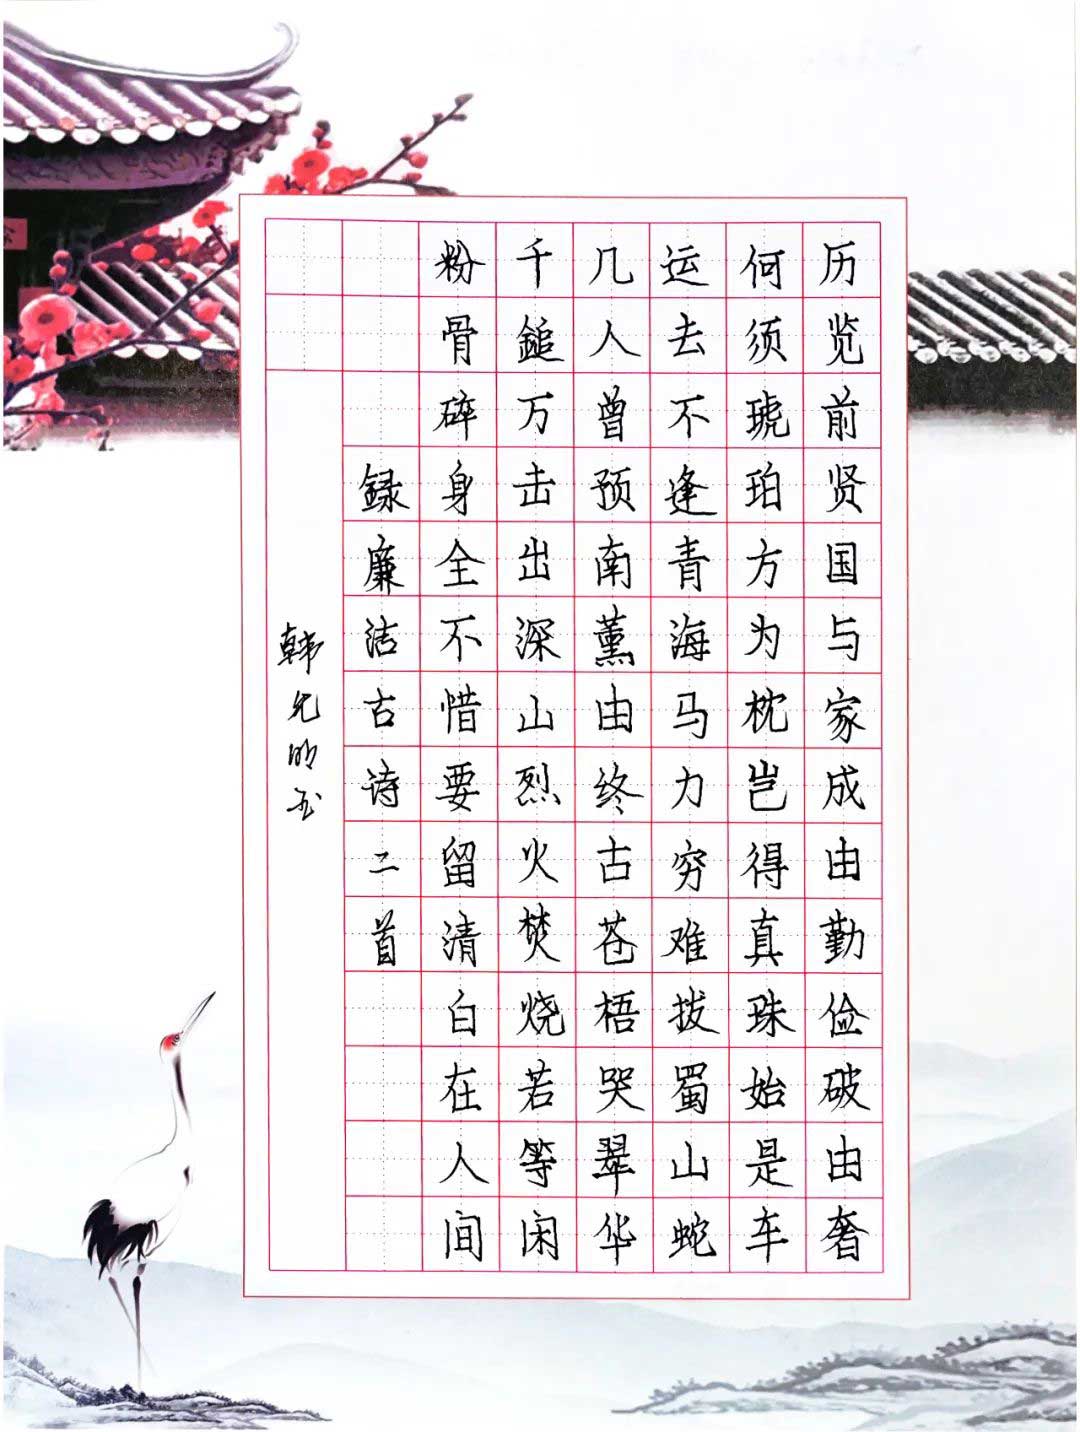 历览前贤国与家成由勤俭破由奢
何须琥珀方为枕岂得真珠始是车
运去不逢青海马力穷难拔蜀山蛇
几人曾预南薰由终古苍梧哭翠华
千鎚万击出深山烈火焚烧若等闲
粉骨碎身全不惜要留清白在人间
録廉洁古诗二首
韩允明书